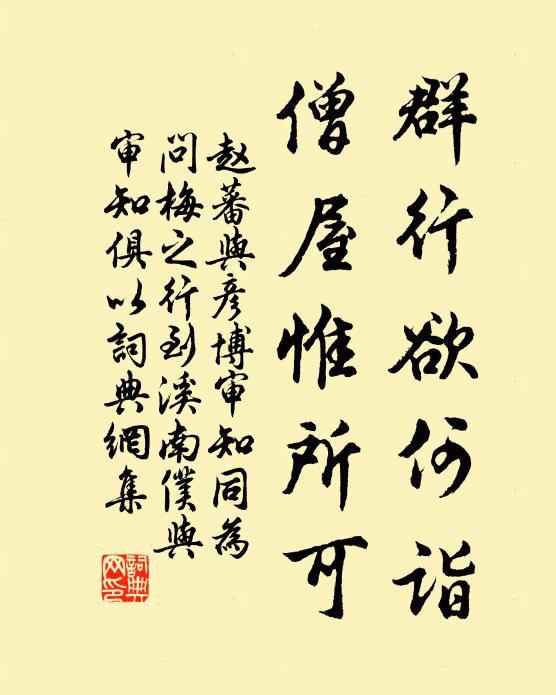 群行欲何詣
僧屋惟所可
赵蕃與彦博审知同為
问梅之行到溪南僕與
审知俱以詞典網集
詞典网印